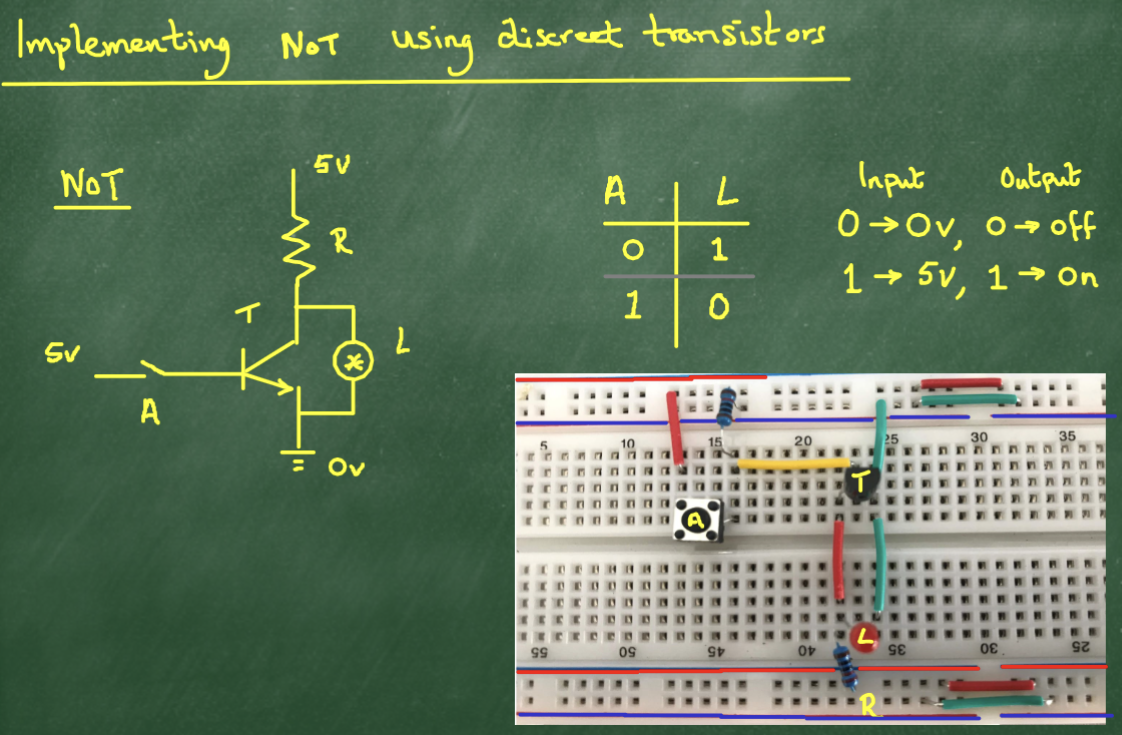 Implementing NOT using discreet transistors
NOT
5v
R
T
5v
A
L
0v
A L
0 1
1 0
Input Output
0 → 0v, 0 → off
1 → 5v, 1 → on
5 10 15 20 25 30 35
T
A
L
55 50 45 40 35 30 25
R